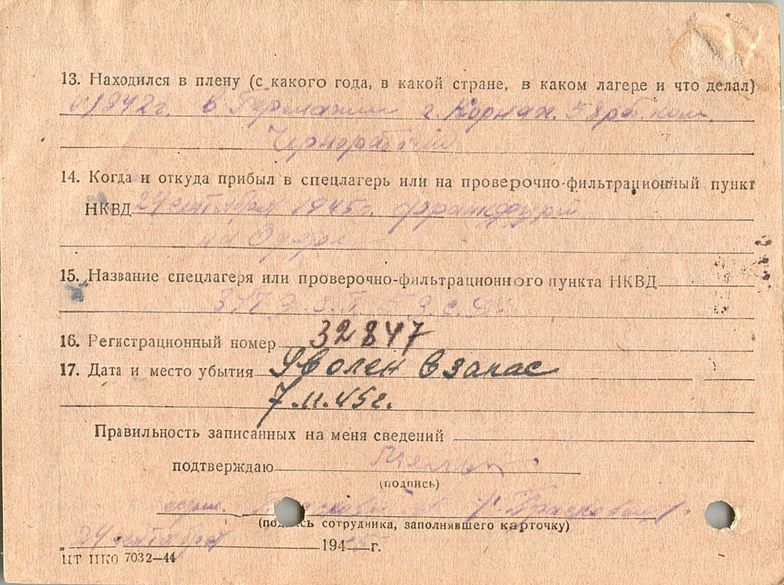 13. Находился в плену (с какого года, в какой стране, в каком лагере и что делал)
с 1942г. в Германии г.
Чернорабочий
14. Когда и откуда прибыл в спецлагерь или на проверочно-фильтрационный пункт
НКВД 24 сентября 1945г. франкфурт
на Одере
15. Название спецлагеря или проверочно-фильтрационного пункта НКВД
16. Регистрационный номер 32847
17. Дата и место убытия Уволен в запас
7.11.45г.
Правильность записанных на меня сведений
подтверждаю
(подпись)
(подпись сотрудника, заполнявшего карточку)
24 сентября 1945 г.
ЦТ НКО 7032-44